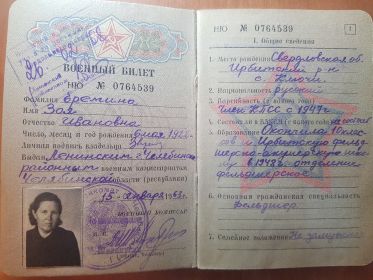 ВОЕННЫЙ БИЛЕТ
НЮ № 0764539
Фамилия Еремина
Имя Зоя
Отчество Ивановна
Число, месяц и год рождения 6 мая 192
Личная подпись владельца
Выдан Ленинским г. Челябинска
районным военным комиссариатом
Челябинской области (республики)
15 января 1963 г.
НЮ № 0764539
1
I. Общие сведения
1. Место рождения Свердловская об.
Ирбитский р-н
с. Ключи
2. Национальность русский
3. Партийность (с какого года)
Член КПСС с 194
4. Состоит в ВЛКСМ (с какого года) не состоит
5. Образование Окончила 10 клас
сов и Ирбитскую фельд
шерско-акушерскую шк
в 1942 г. отделение
фельдшерское
6. Основная гражданская специальность
Фельдшер
7. Семейное положение Не замужем